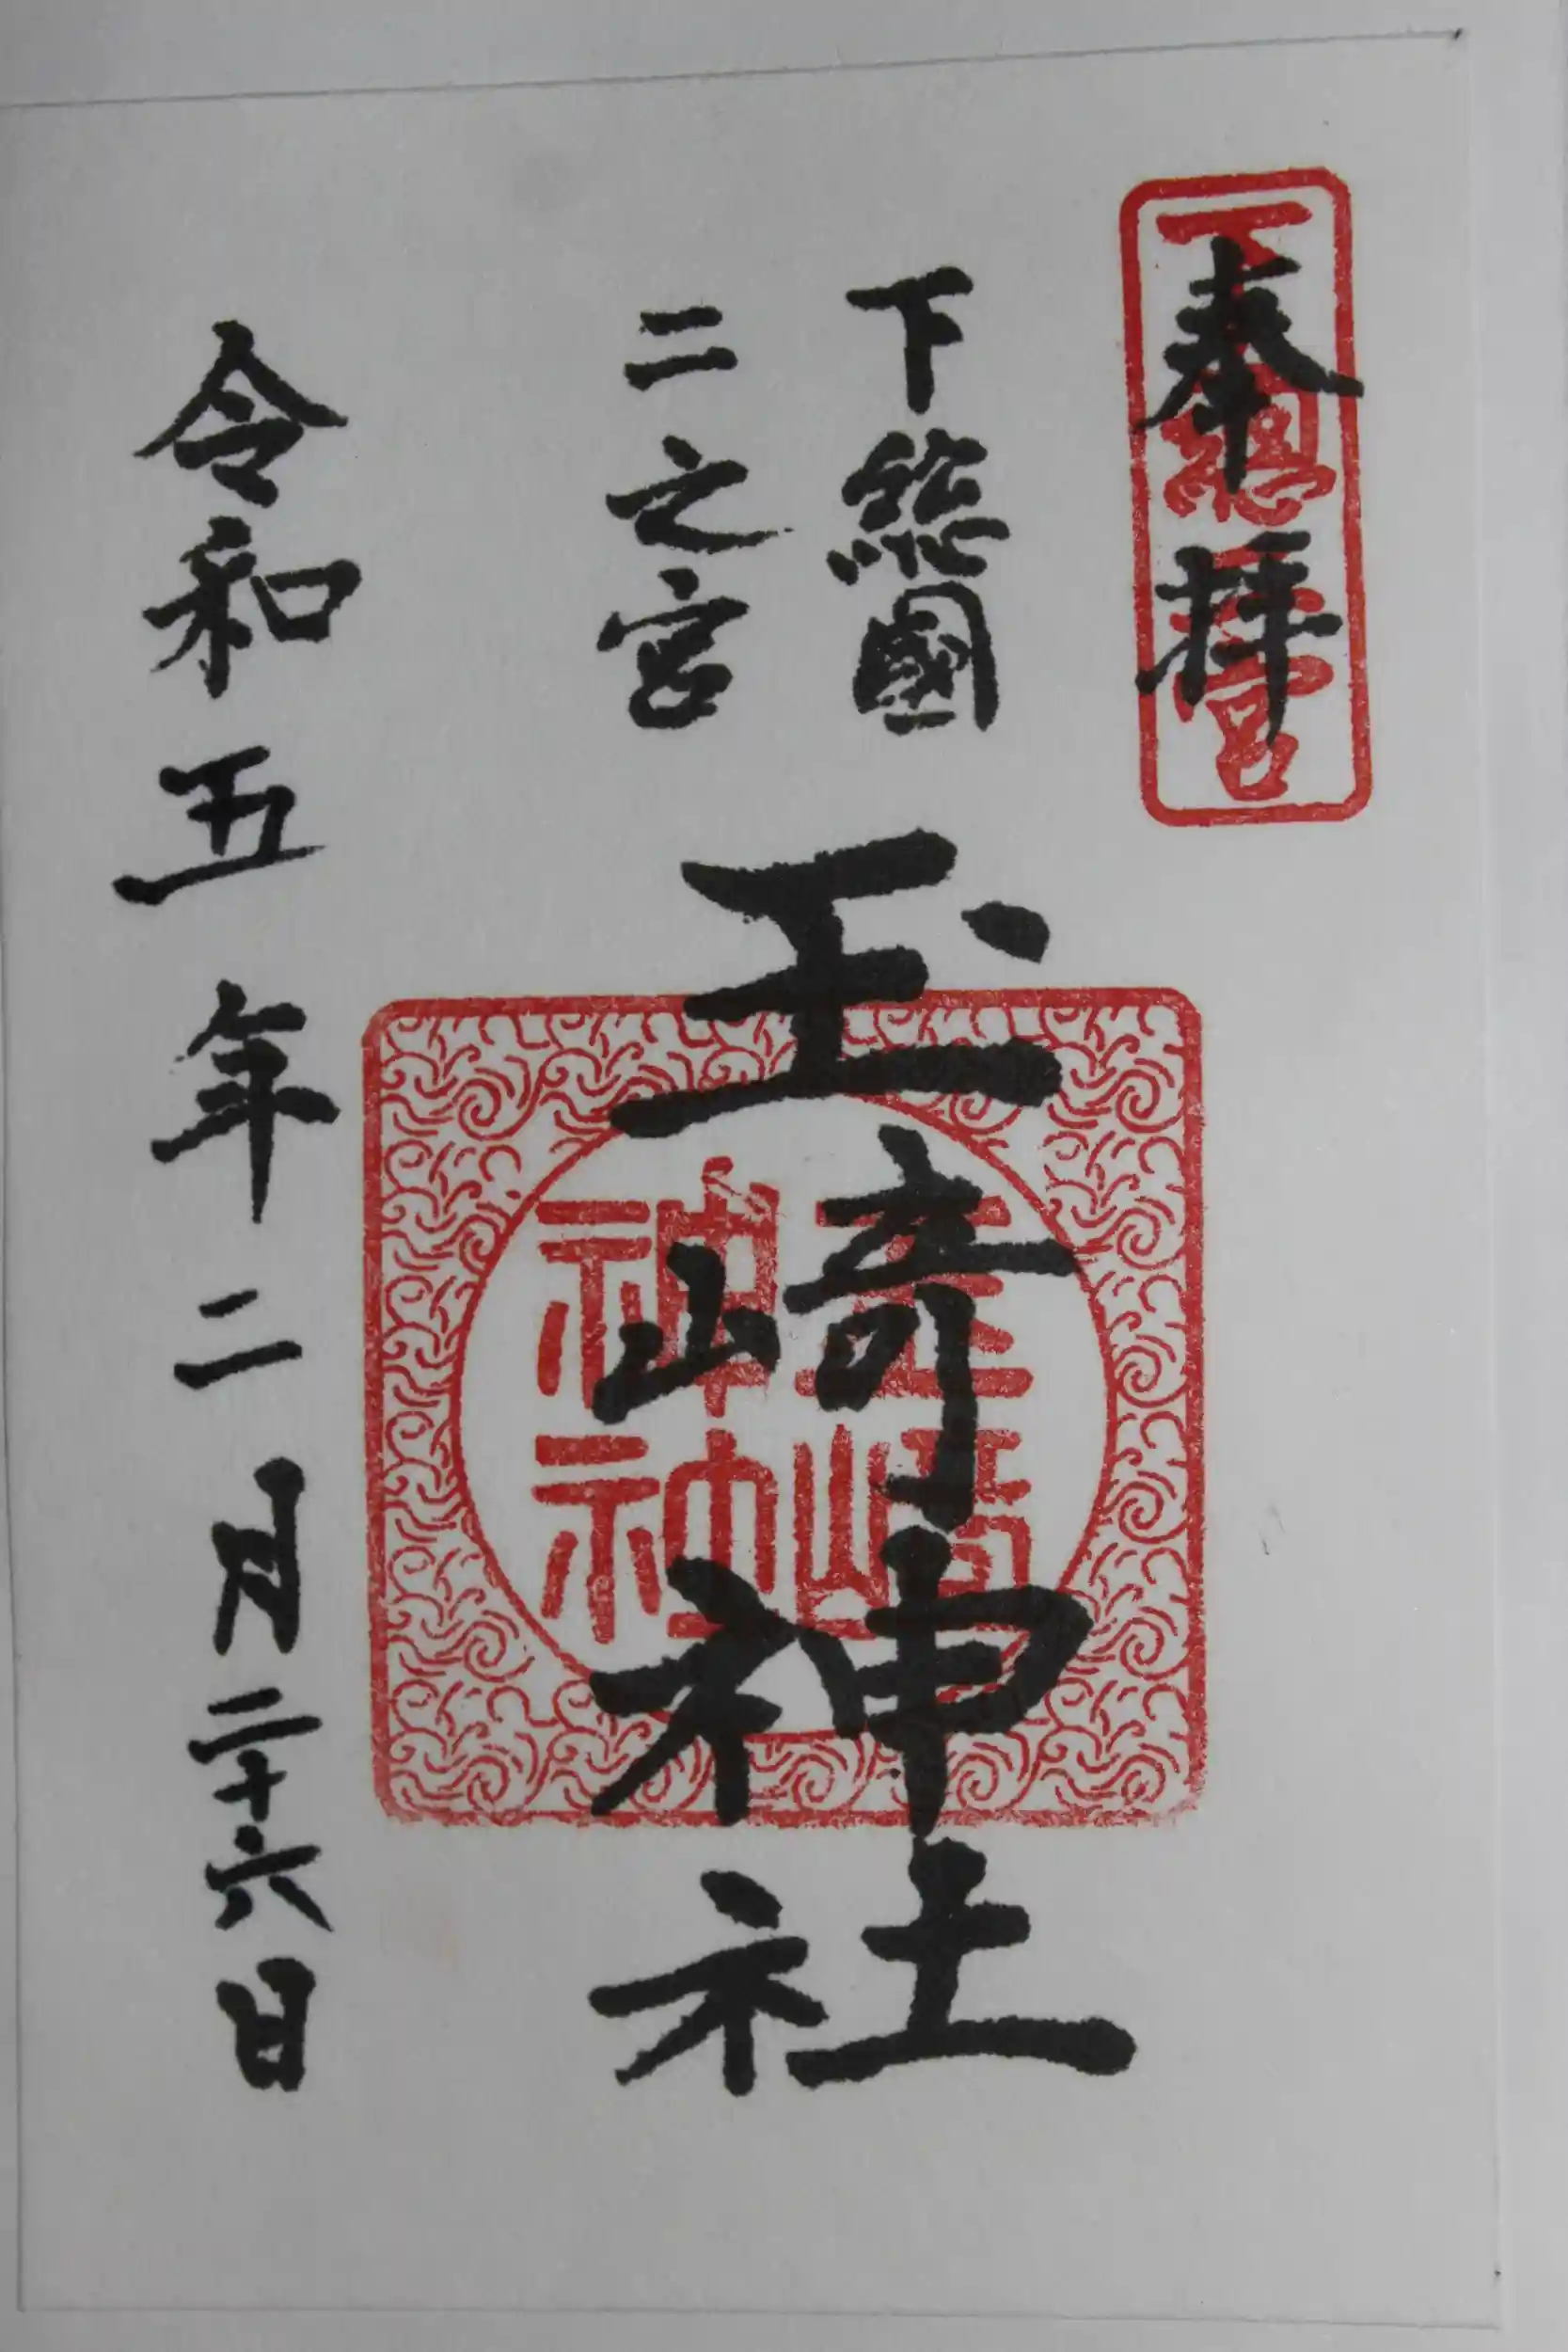 奉拝
下總國
二之宮
玉﨑神社
令和五年二月二十六日